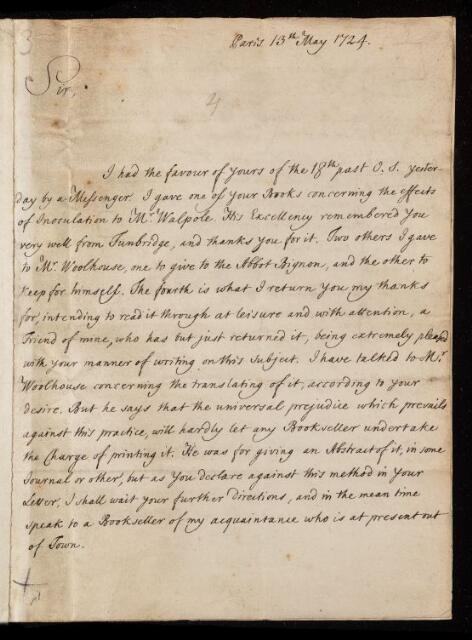 3
Paris 13th May 1724.
Sir,
4
I had the favour of yours of the 18th past O. S. yester-
day by a Messenger. I gave one of your Books concerning the effects
of Inoculation to Mr. Walpole. His Excellency remembered you
very well from Tunbridge, and thanks you for it. Two others I gave
to Mr. Woolhouse, one to give to the Abbot Bignon, and the other to
keep for himself. The fourth is what I return you my thanks
for, intending to read it through at leisure and with attention, a
Friend of mine, who has but just returned it, being extremely pleas'd
with your manner of writing on this Subject. I have talked to Mr.
Woolhouse concerning the translating of it, according to your
desire. But he says that the universal prejudice which prevails
against this practice, will hardly let any Bookseller undertake
the Charge of printing it. He was for giving an Abstract of it, in some
Journal or other, but as you declare against this method in your
Letter, I shall wait your further directions, and in the mean time
speak to a Bookseller of my acquaintance who is at present out
of Town.